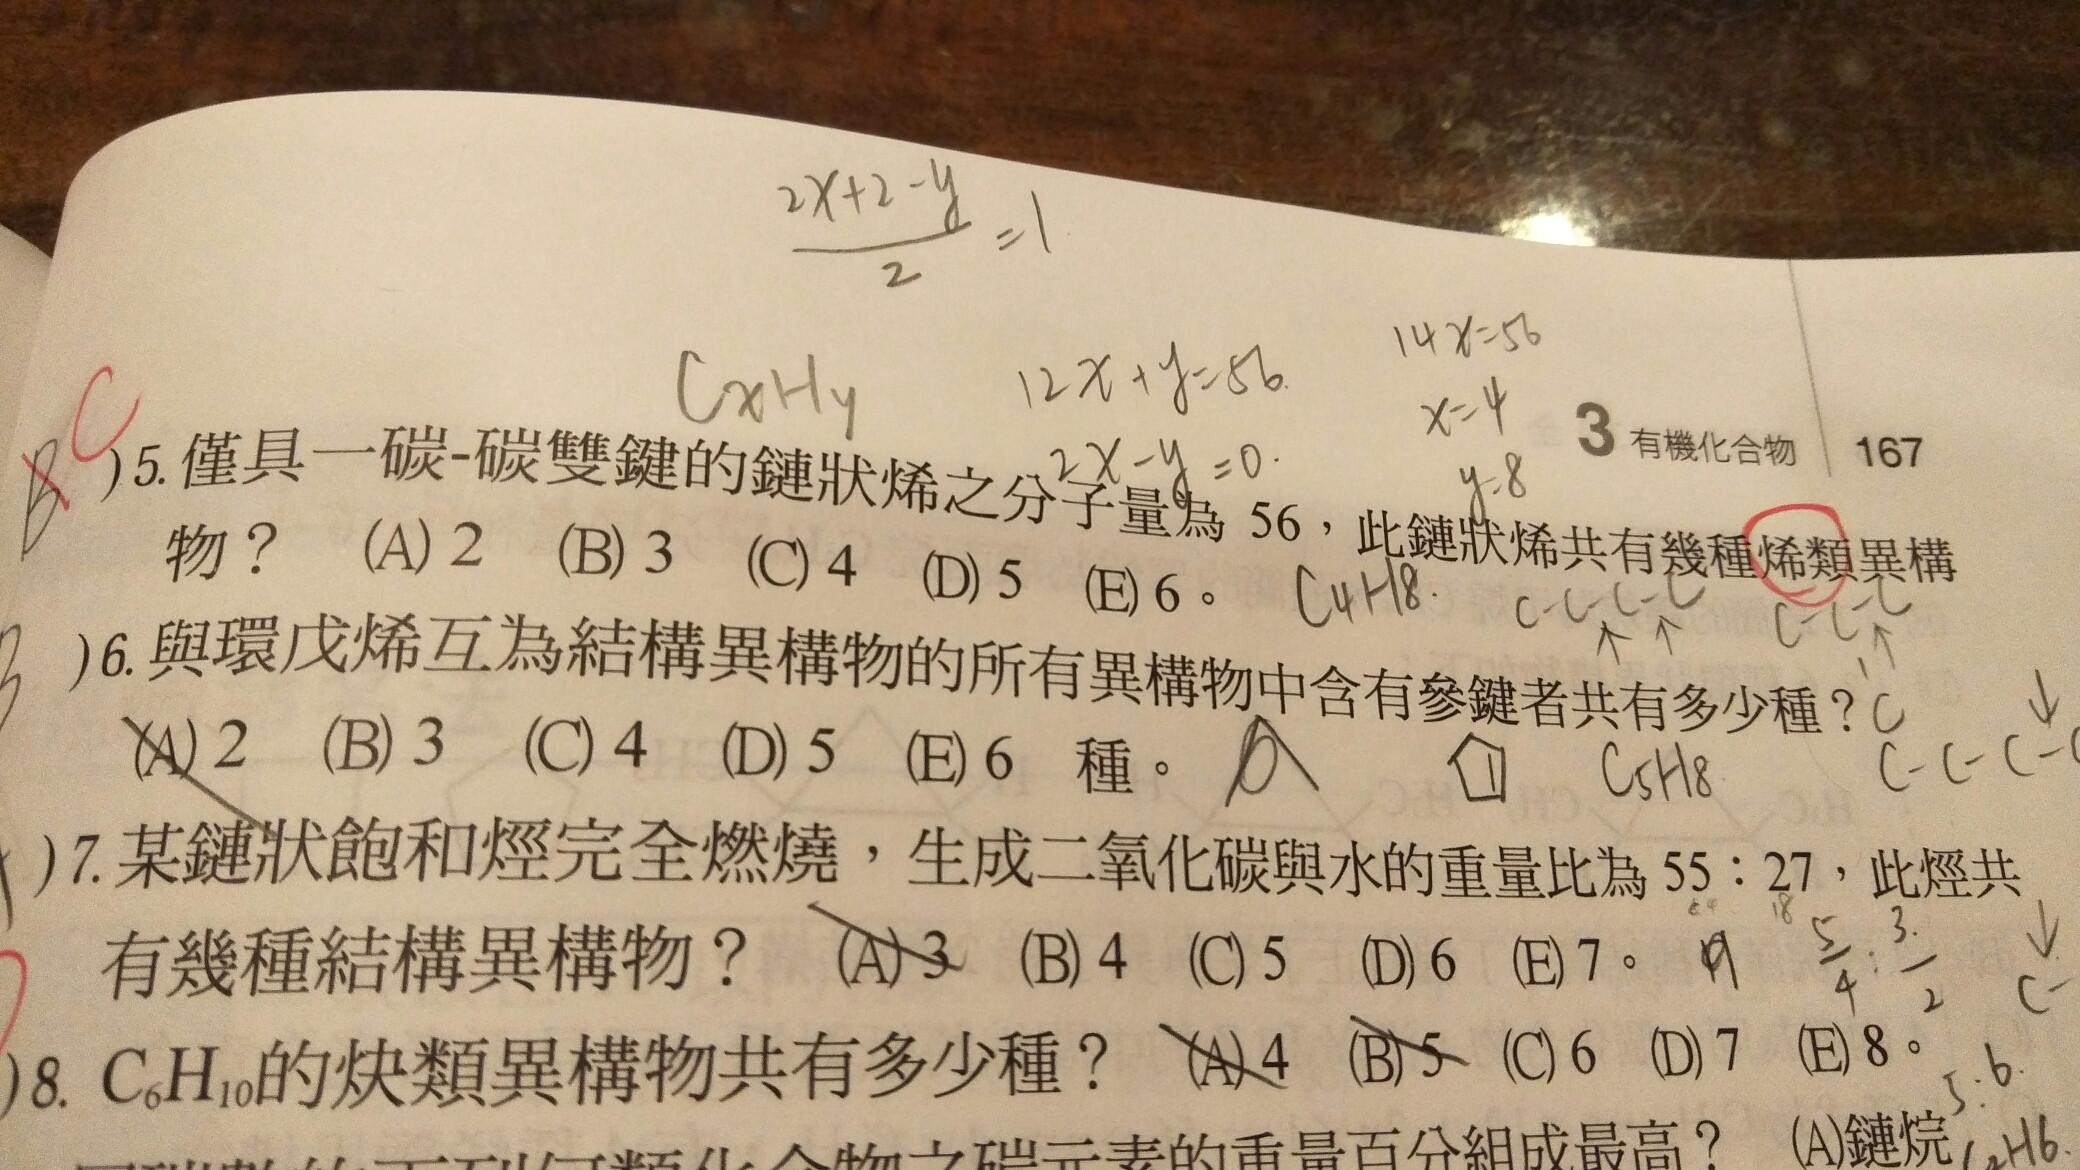 2x+2-y
2
=1
14x=56
CxHy
12x+y=56.
x=4
3 有機化合物 167
C
B
2x-y=0.
y=8
)5.僅具一碳-碳雙鍵的鏈狀烯之分子量為 56，此鏈狀烯共有幾種烯類異構
物？ (A) 2 (B) 3 (C) 4 (D) 5 (E) 6。
C4H8.
C-C-C-C
C-C-C
C
)6.與環戊烯互為結構異構物的所有異構物中含有參鍵者共有多少種？
(A) 2 (B) 3 (C) 4 (D) 5 (E) 6 種。
C5H8
C-C-C-C
)7.某鏈狀飽和烴完全燃燒，生成二氧化碳與水的重量比為 55：27，此烴共
18
有幾種結構異構物？ (A) 3 (B) 4 (C) 5 (D) 6 (E) 7。
5
4
:
3
2
C-
)8. C6H10的炔類異構物共有多少種？ (A) 4 (B) 5 (C) 6 (D) 7 (E) 8。
5:6.
(A)鏈烷